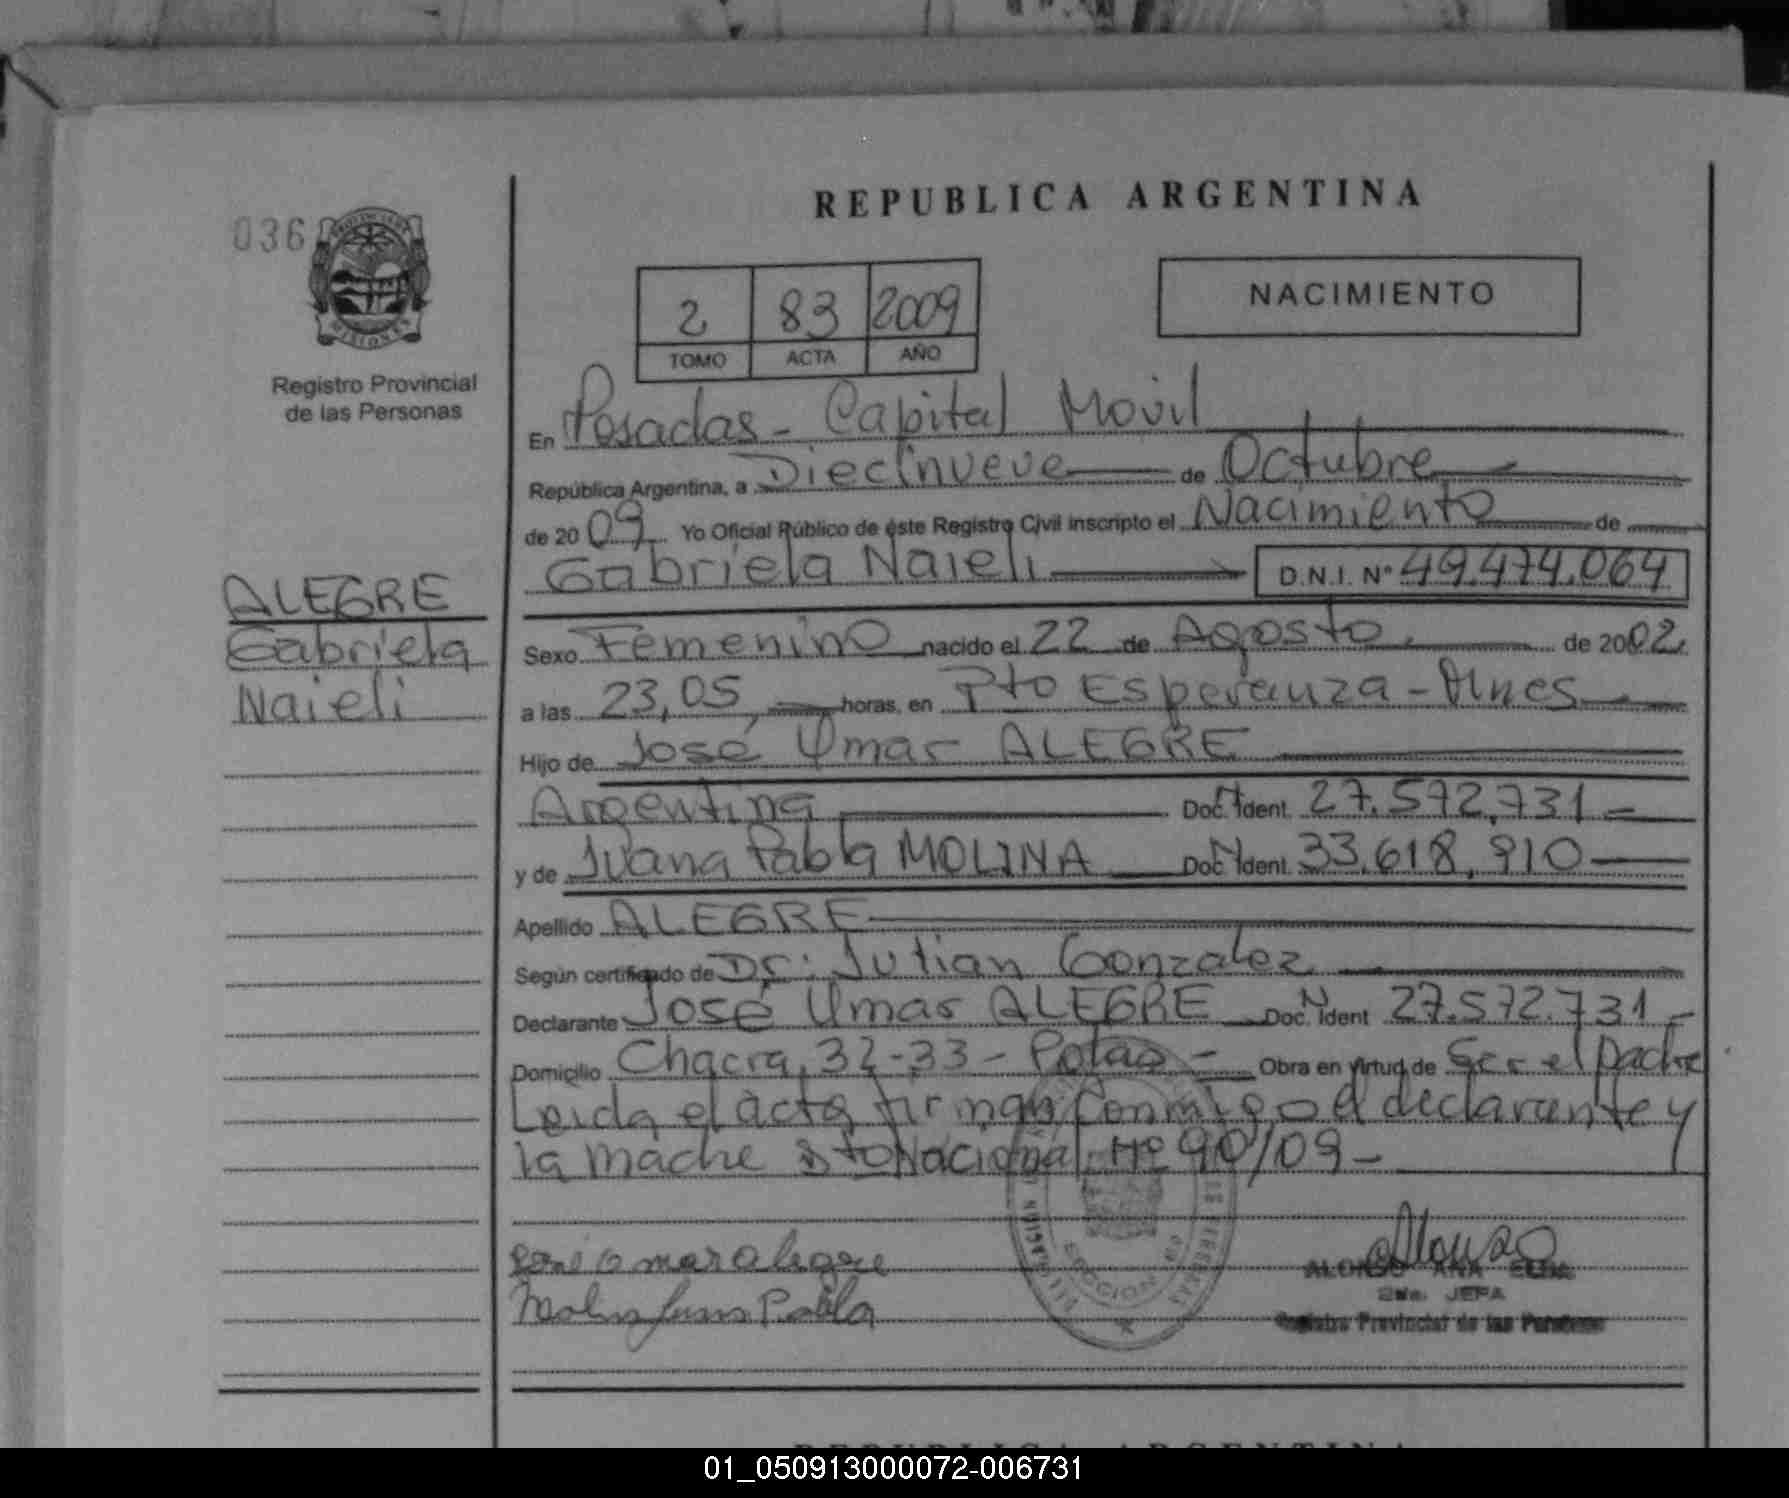 REPUBLICA ARGENTINA
036
PROVINCIA DE
MISIONES
Registro Provincial
de las Personas
2 83 2009
TOMO ACTA AÑO
NACIMIENTO
En Posadas - Capital Movil
República Argentina, a Diecinueve de Octubre
de 2009 Yo Oficial Público de este Registro Civil inscripto el Nacimiento de
Gabriela Naieli D.N.I. Nº 49.474.064
ALEGRE
Gabriela
Naieli
Sexo Femenino nacido el 22 de Agosto de 2002
a las 23,05 horas, en Pto Esperanza - Mnes
Hijo de José Omar ALEGRE
Argentina Doc. Ident. 27.572.731
y de Juana Pabla MOLINA Doc. Ident. 33.618.910
Apellido ALEGRE
Según certificado de Dr: Julian Gonzalez
Declarante José Omar ALEGRE Doc. Ident 27.572.731
Domicilio Chacra 32-33 - Obra en virtud de Ser el Padre
Leida el acta firman Conmigo el declarante y
la madre Nacional Nº 90/09 -
José Omar Alegre
Molina Juana Pabla
Alonso
ALONSO ANA ELDA
2da. JEFA
Registro Provincial de las Personas
REPUBLICA ARGENTINA
01_050913000072-006731